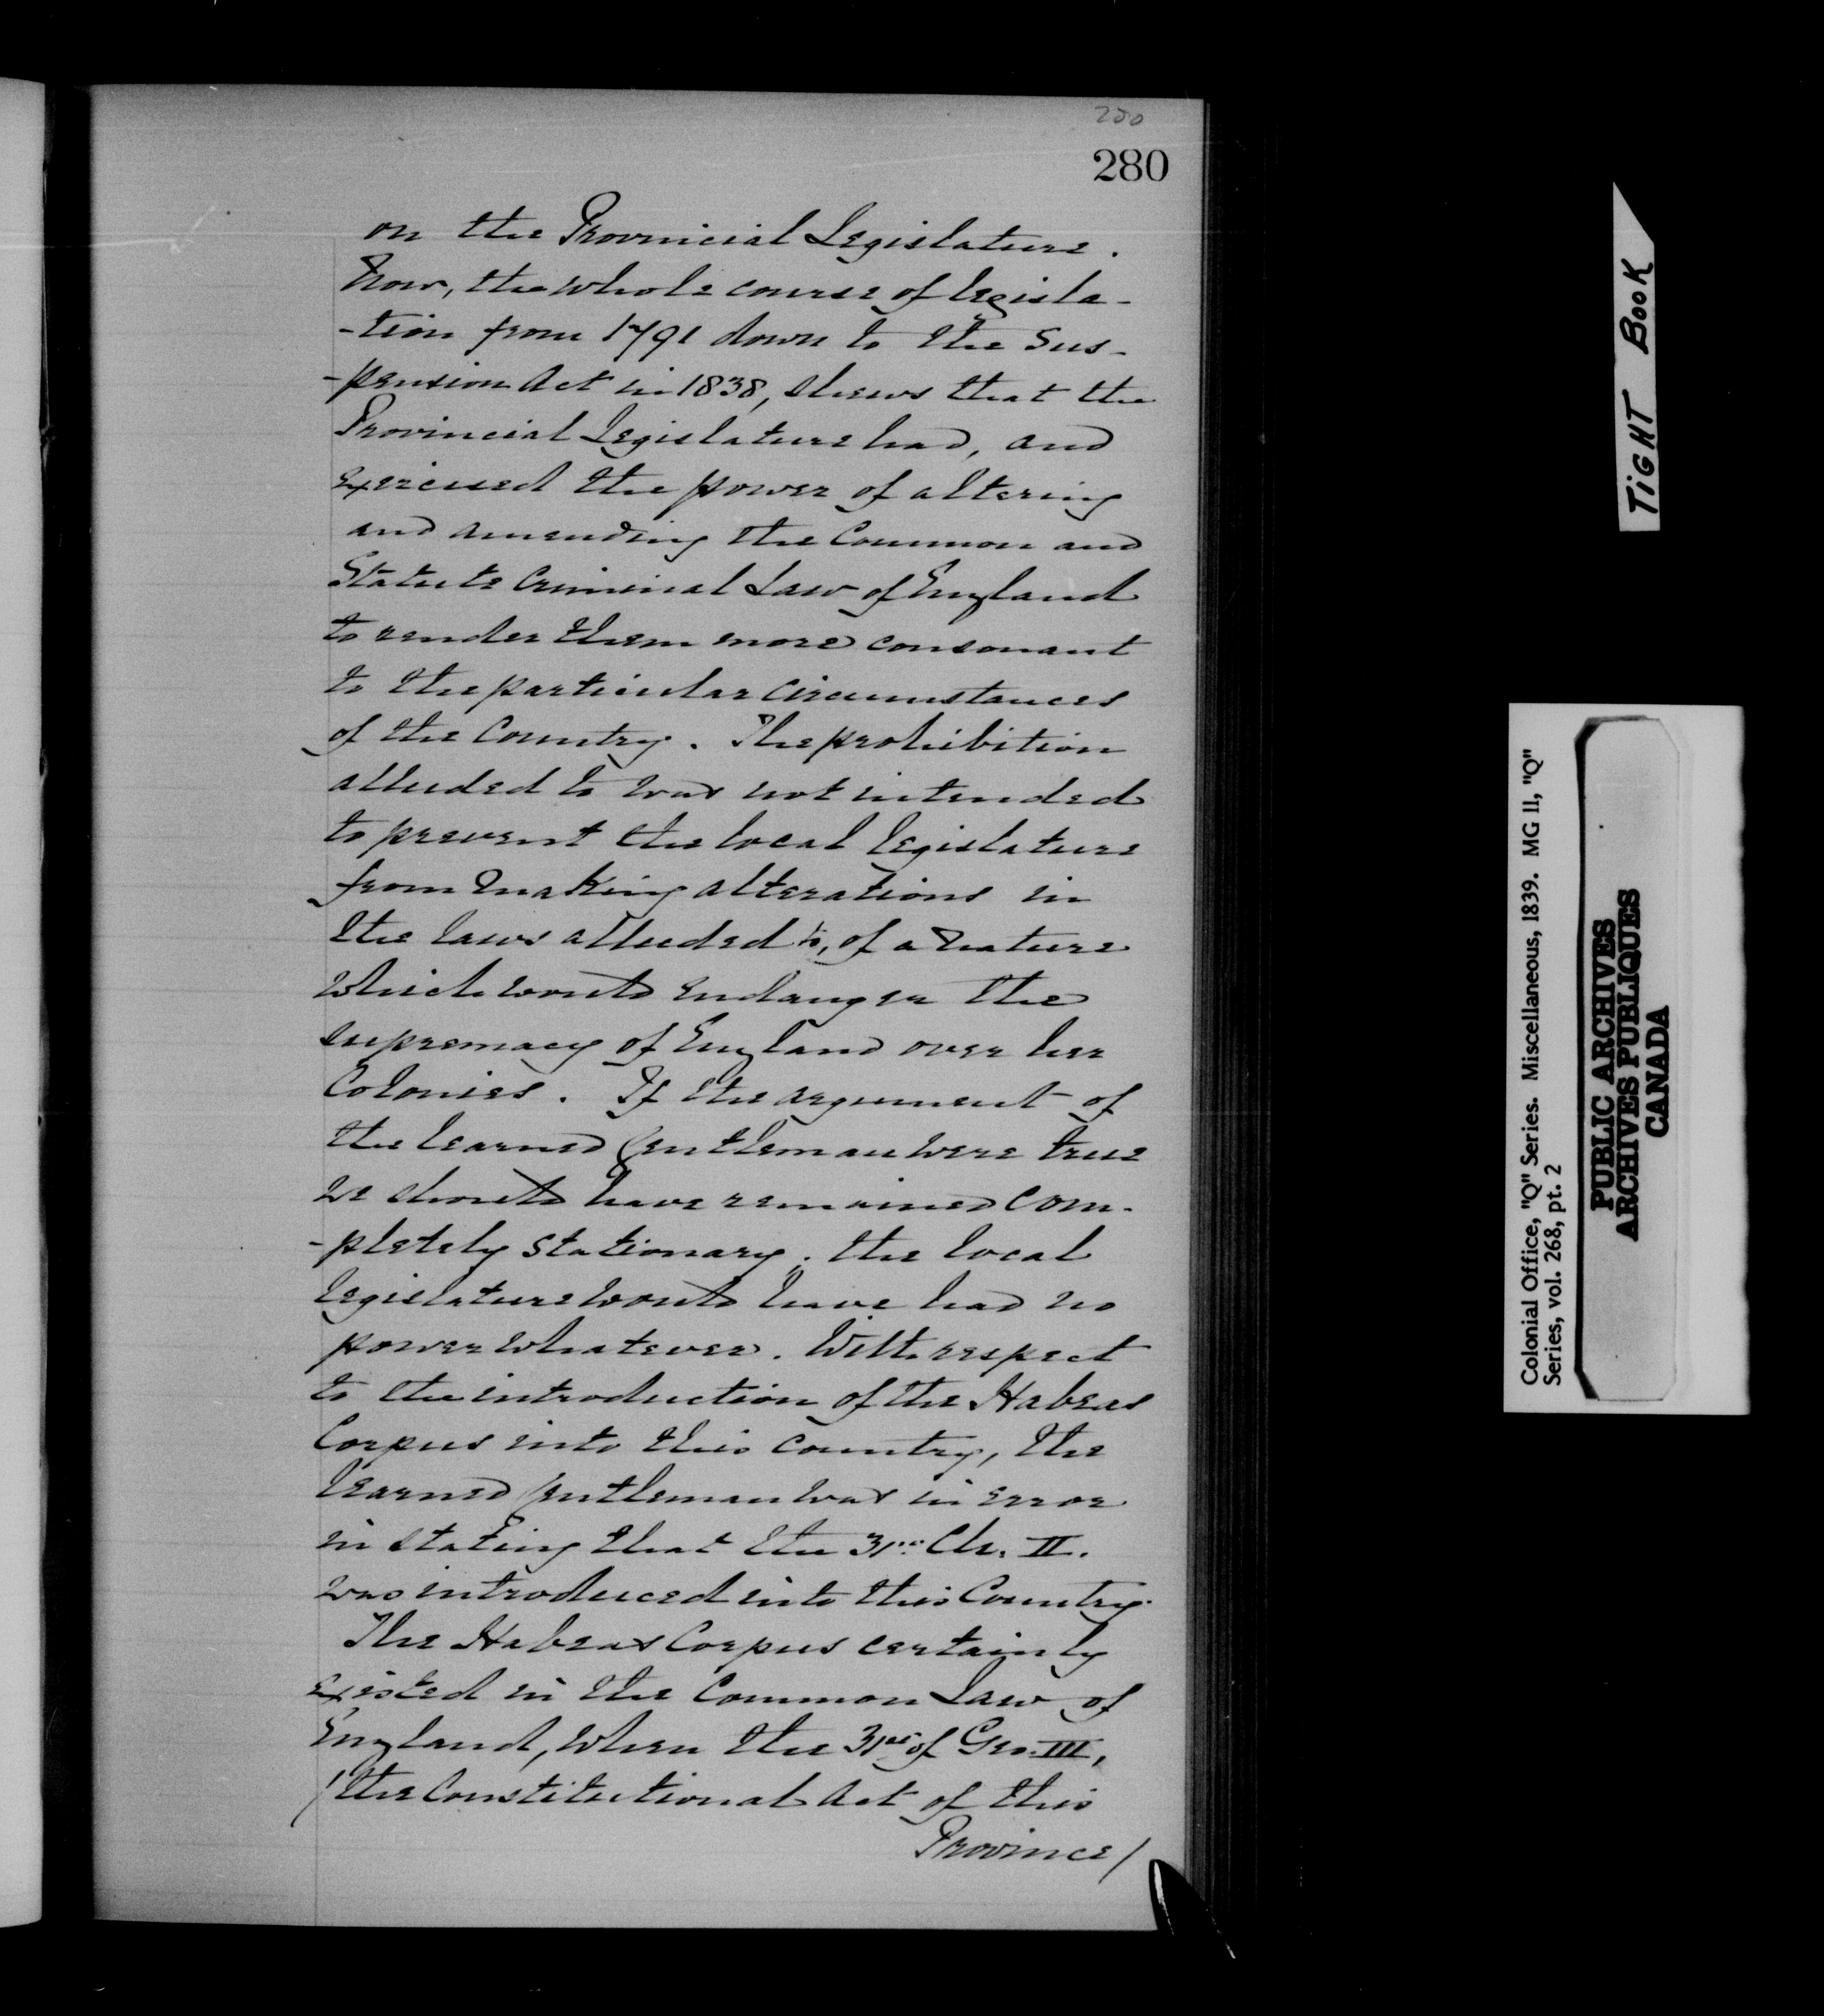 280
280
on the Provincial Legislature.
Now, the whole course of legisla-
-tion from 1791 down to the Sus-
-pension Act in 1838, shews that the
Provincial Legislature had, and
exercised the power of altering
and amending the Common and
Statute Criminal Law of England
to render them more consonant
to the particular circumstances
of the Country. The prohibition
alluded to was not intended
to prevent the local legislature
from making alterations in
the laws alluded to, of a nature
which would endanger the
supremacy of England over her
Colonies. If the argument of
the learned Gentleman were true
we should have remained com-
-pletely stationary; the local
legislature would have had no
power whatever. With respect
to the introduction of the Habeas
Corpus into this country, the
learned Gentleman was in error
in stating that the 31st Ch. II.
was introduced into this Country.
The Habeas Corpus certainly
existed in the Common Law of
England, when the 31st of Geo. III,
(the Constitutional Act of this
Province)
TIGHT BOOK
Colonial Office, "Q" Series. Miscellaneous, 1839. MG 11, "Q"
Series, vol. 268, pt. 2
PUBLIC ARCHIVES
ARCHIVES PUBLIQUES
CANADA